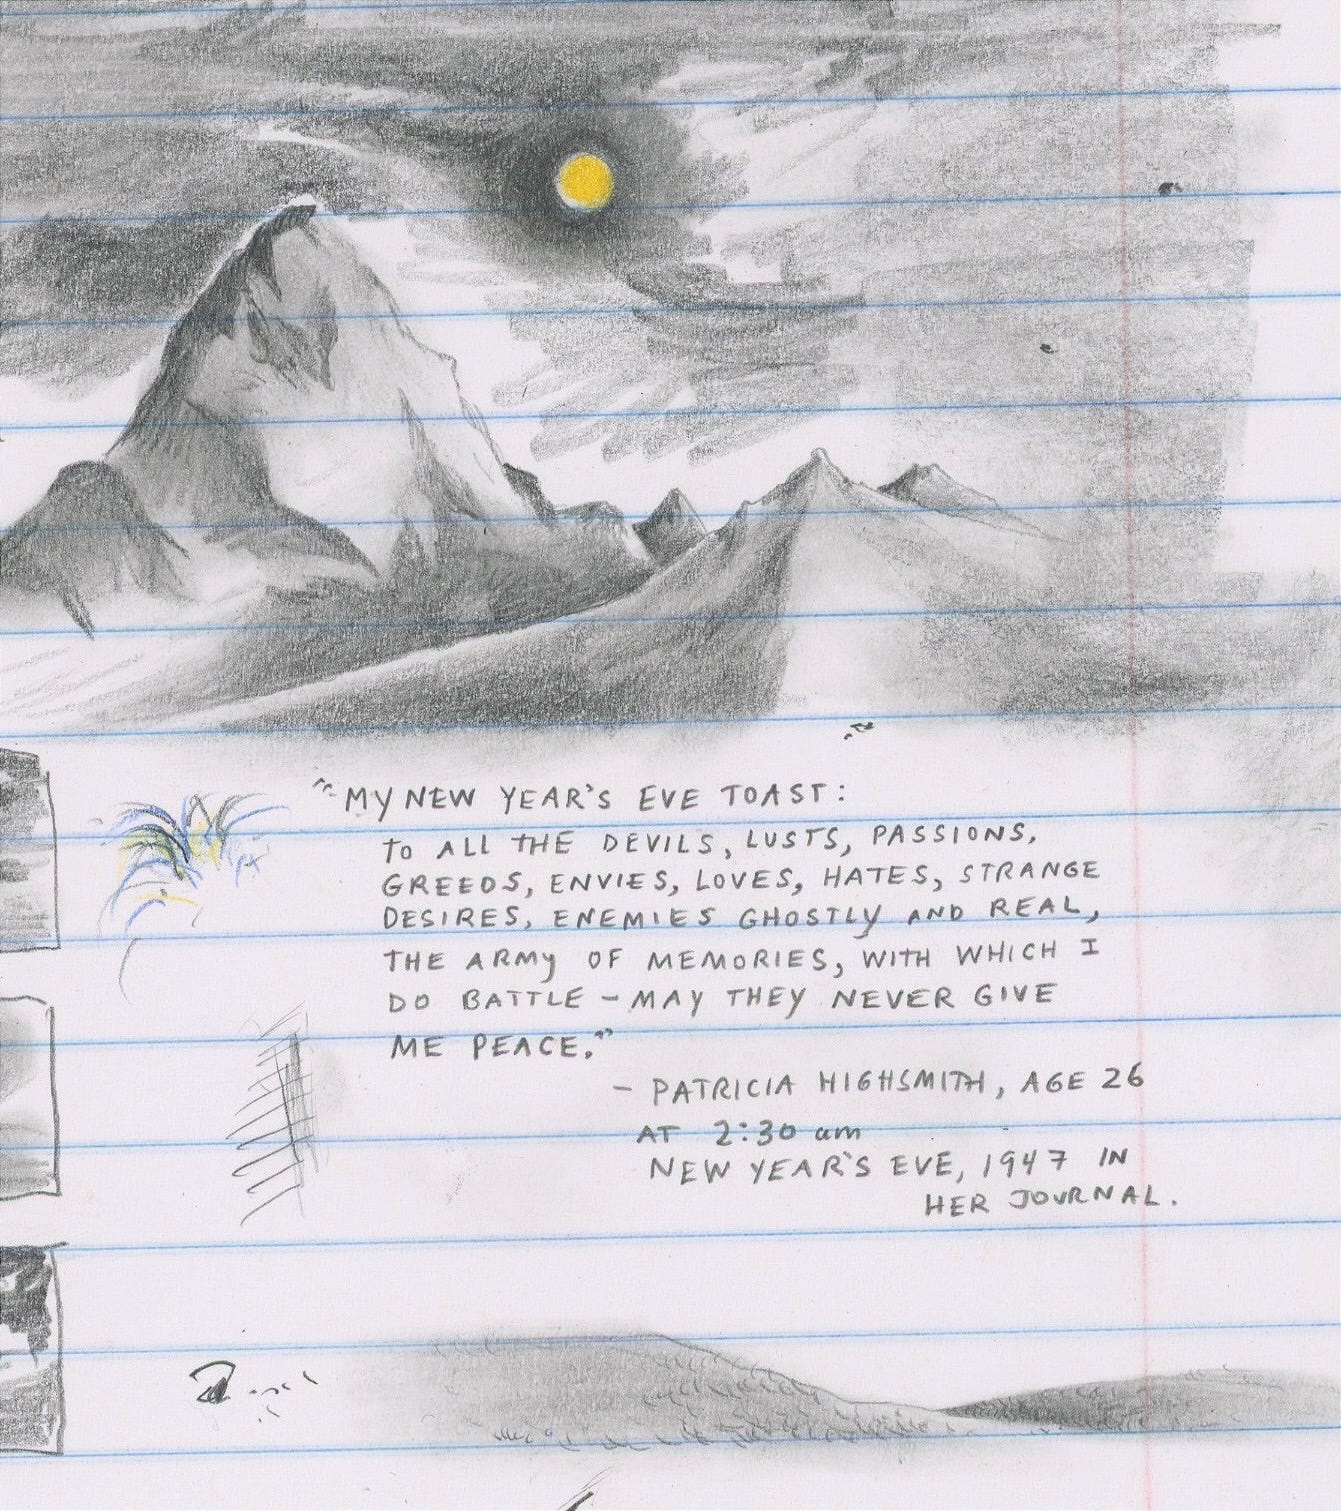 "MY NEW YEAR'S EVE TOAST:
TO ALL THE DEVILS, LUSTS, PASSIONS,
GREEDS, ENVIES, LOVES, HATES, STRANGE
DESIRES, ENEMIES GHOSTLY AND REAL,
THE ARMY OF MEMORIES, WITH WHICH I
DO BATTLE – MAY THEY NEVER GIVE
ME PEACE."
– PATRICIA HIGHSMITH, AGE 26
AT 2:30 am
NEW YEAR'S EVE, 1947 IN
HER JOURNAL.